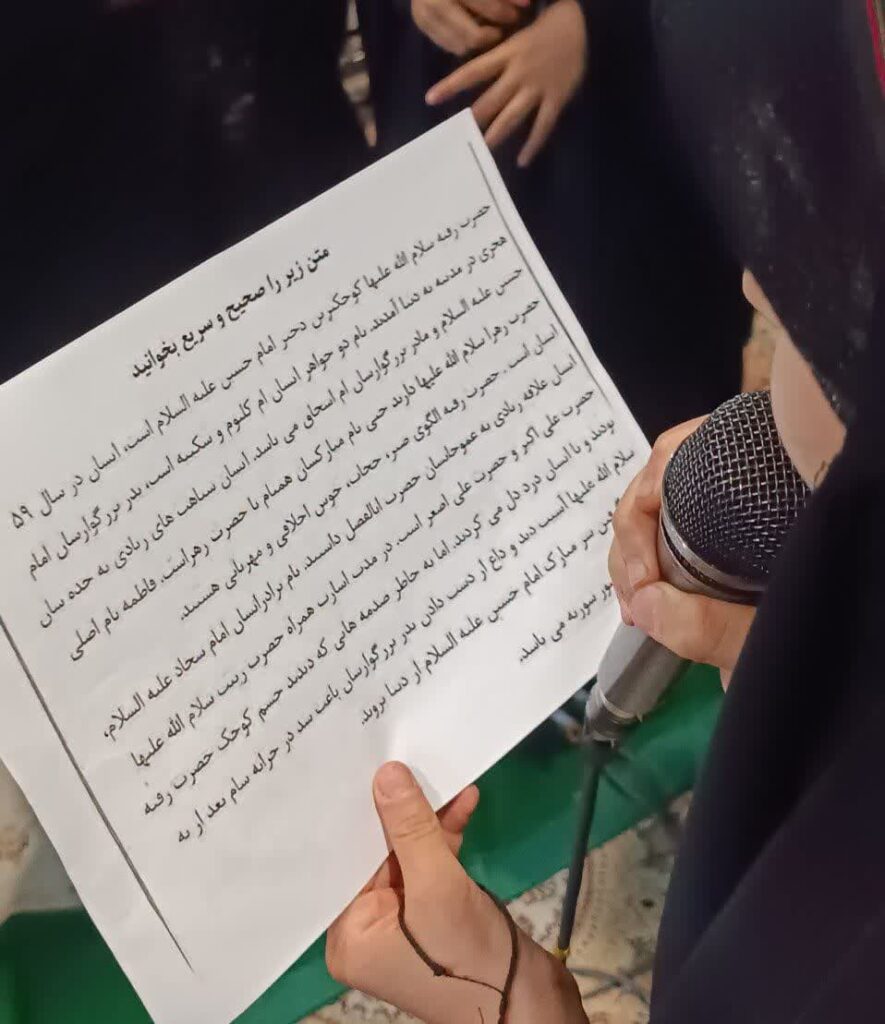 متن زیر را صحیح و سریع بخوانید
حضرت رقیه سلام الله علیها کوچکترین دختر امام حسین علیه السلام است، ایشان در سال ۵۹
هجری در مدینه به دنیا آمدند. نام دو خواهر ایشان ام کلثوم و سکینه است، پدر بزرگوارشان امام
حسین علیه السلام و مادر بزرگوارشان ام اسحاق می باشد. ایشان شباهت های زیادی به جده شان
حضرت زهرا سلام الله علیها دارند حتی نام مبارکشان همنام با حضرت زهراست. فاطمه نام اصلی
ایشان است . حضرت رقیه الگوی صبر، حجاب، خوش اخلاقی و مهربانی هستند.
ایشان علاقه زیادی به عموجانشان حضرت اباالفضل داشتند. نام برادرانشان امام سجاد علیه السلام،
حضرت علی اکبر و حضرت علی اصغر است. در مدت اسارت همراه حضرت زینب سلام الله علیها
بودند و با ایشان درد دل می کردند. اما به خاطر صدمه هایی که دیدند جسم کوچک حضرت رقیه
سلام الله علیها آسیب دید و داغ از دست دادن پدر بزرگوارشان باعث شد در خرابه شام بعد از به
سر مبارک امام حسین علیه السلام از دنیا بروند.
سوریه می باشد.